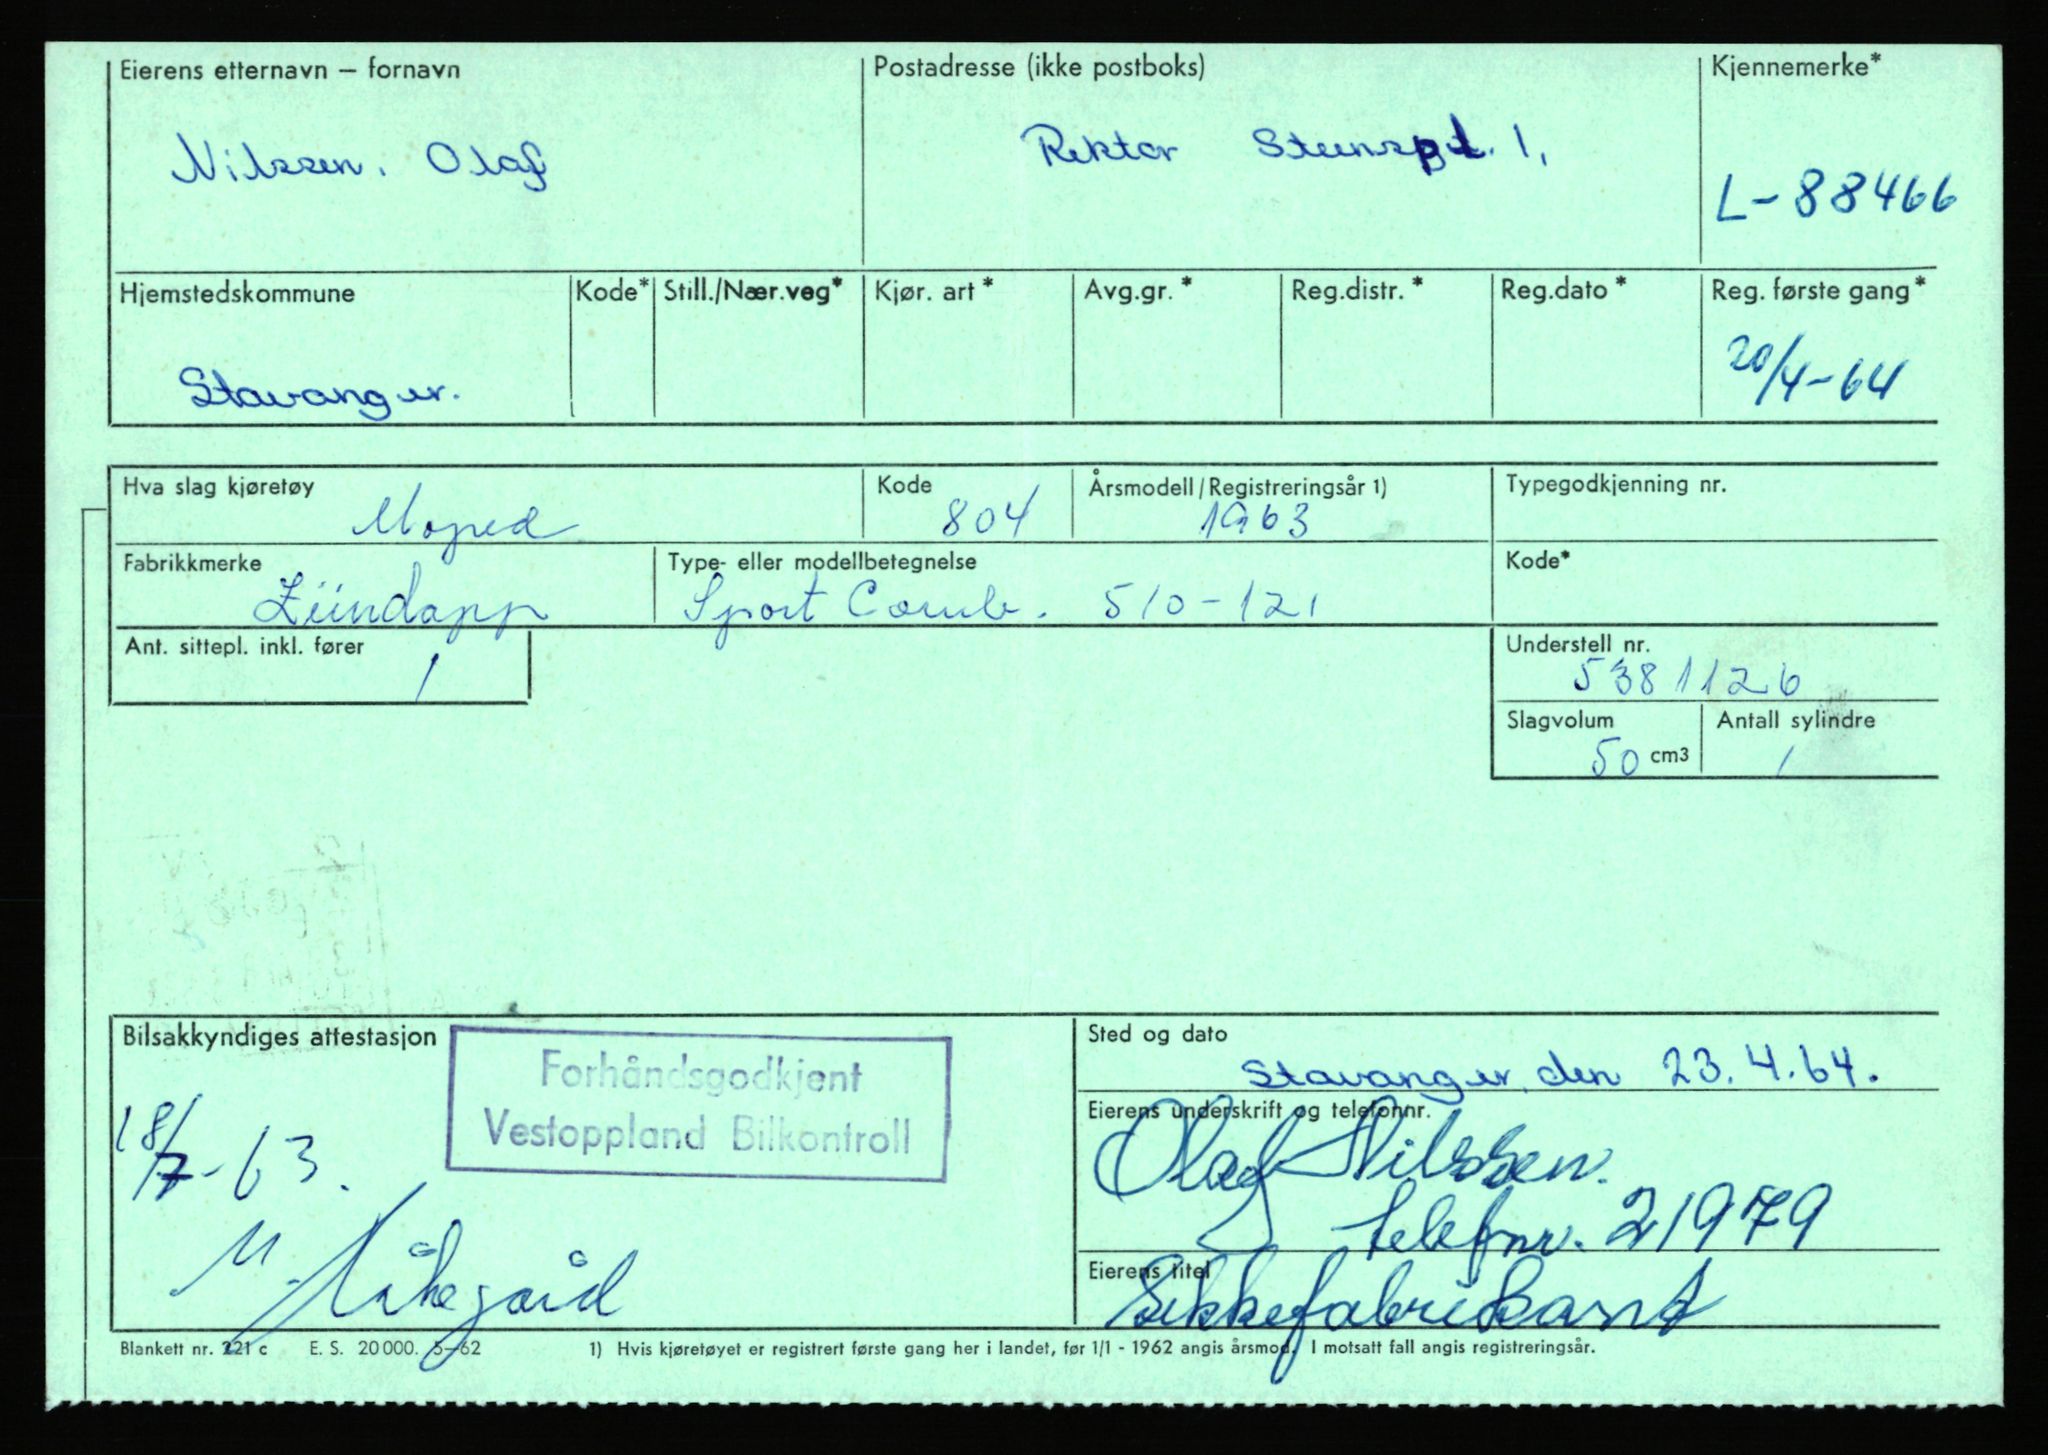 Eierens etternavn – fornavn
Postadresse (ikke postboks)
Kjennemerke*
Nilssen, Olaf
Rektor Steenspl. 1,
L-88466
Hjemstedskommune
Kode*
Still./Nær.veg*
Kjør. art *
Avg.gr. *
Reg.distr. *
Reg.dato *
Reg. første gang*
Stavanger.
20/4-64
Hva slag kjøretøy
Moped
Kode
804
Årsmodell/Registreringsår 1)
1963
Typegodkjenning nr.
Fabrikkmerke
Zündapp
Type- eller modellbetegnelse
Sport Comb. 510-121
Kode*
Ant. sittepl. inkl. fører
1
Understell nr.
5381126
Slagvolum
50 cm3
Antall sylindre
1
Bilsakkyndiges attestasjon
Forhåndsgodkjent
Vestoppland Bilkontroll
18/7-63.
Sted og dato
Stavanger, den 23.4.64.
Eierens underskrift og telefonnr.
Olaf Nilssen.
telefnr. 21979
Eierens titel
Sekkefabrikant
Blankett nr. 221 c E. S. 20 000. 5–62
1) Hvis kjøretøyet er registrert første gang her i landet, før 1/1 - 1962 angis årsmod. I motsatt fall angis registreringsår.